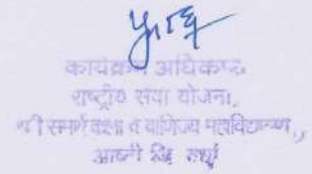 कार्यक्रम अधिकारी
राष्ट्रीय सेवा योजना,
श्री समर्थ कला व वाणिज्य महाविद्यालय,
आष्टी जि.